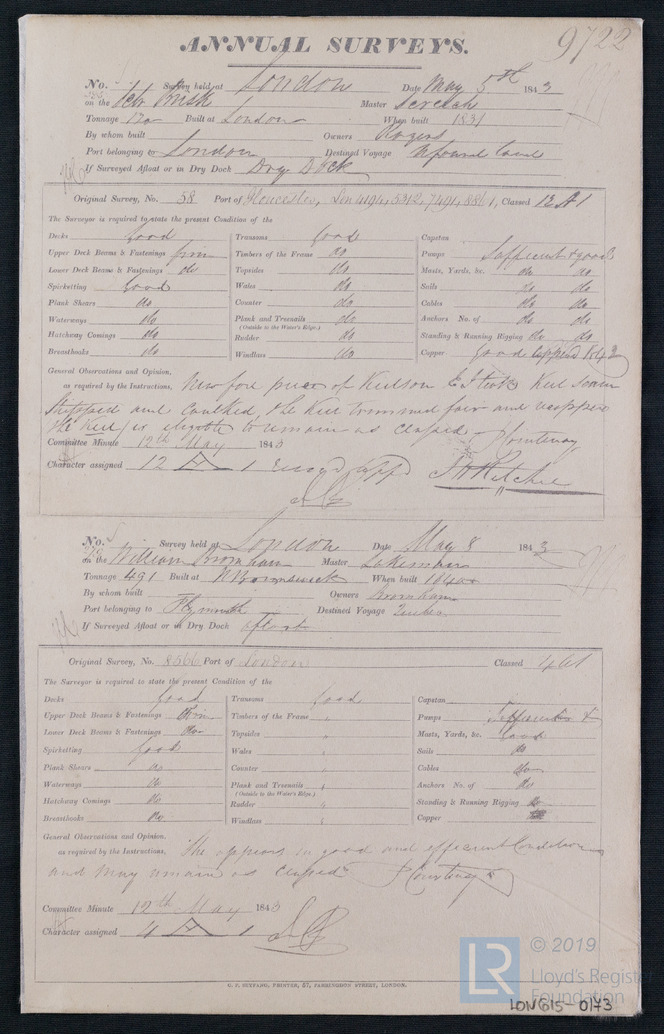 9722
ANNUAL SURVEYS.
No. Survey held at London Date May 5th 1843
on the Master
Tonnage 120 Built at London When built 1831
By whom built Owners Rogers
Port belonging to London Destined Voyage
If Surveyed Afloat or in Dry Dock Dry Dock
Original Survey, No. 58 Port of Gloucester, Lon 4194, 5312, 7491, 8861, Classed 12 A 1
The Surveyor is required to state the present Condition of the
Decks Good Transoms Good Capstan
Upper Deck Beams & Fastenings firm Timbers of the Frame do Pumps Sufficient & good
Lower Deck Beams & Fastenings do Topsides do Masts, Yards, &c. do do
Spirketting Good Wales do Sails do do
Plank Shears do Counter do Cables do do
Waterways do Plank and Treenails do Anchors No. of do do
(Outside to the Water's Edge.)
Hatchway Comings do Rudder do Standing & Running Rigging do do
Breasthooks do Windlass do Copper Good 1842
General Observations and Opinion,
as required by the Instructions, New fore piece of Keelson Keel Seam
Stripped and caulked, the Keel trimmed fair and
the Keel, is eligible to remain as classed P Courtenay
Committee Minute 12th May 1843
Character assigned 12 A 1 J H Ritchie
No. Survey held at London Date May 8 1843
on the William Bromham Master
Tonnage 491 Built at N Brownswick When built 1840
By whom built Owners Bromham
Port belonging to Plymouth Destined Voyage Quebec
If Surveyed Afloat or in Dry Dock afloat
Original Survey, No. 8566 Port of London Classed 4 A 1
The Surveyor is required to state the present Condition of the
Decks Good Transoms Good Capstan
Upper Deck Beams & Fastenings firm Timbers of the Frame Pumps Sufficient &
Lower Deck Beams & Fastenings do Topsides Masts, Yards, &c. Good
Spirketting Good Wales Sails do
Plank Shears do Counter Cables do
Waterways do Plank and Treenails Anchors No. of do
(Outside to the Water's Edge.)
Hatchway Comings do Rudder Standing & Running Rigging do
Breasthooks do Windlass Copper
General Observations and Opinion,
as required by the Instructions, She appears in good and efficient Condition
and may remain as classed P Courtenay
Committee Minute 12th May 1843
Character assigned 4 A 1
G. F. SUTFANG, PRINTER, 57, FARRINGDON STREET, LONDON.
LR © 2019
Lloyd's Register
Foundation
LON 615-0173